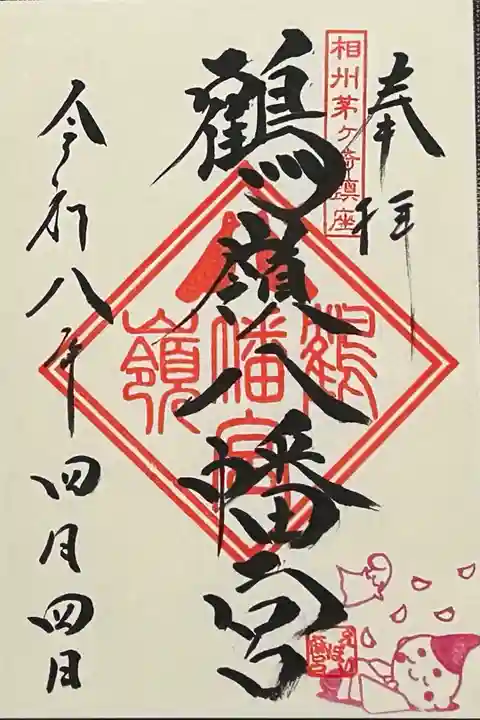 奉拝
相州茅ヶ崎鎮座
鶴嶺八幡宮
鶴
八幡宮
嶺
令和八年四月四日